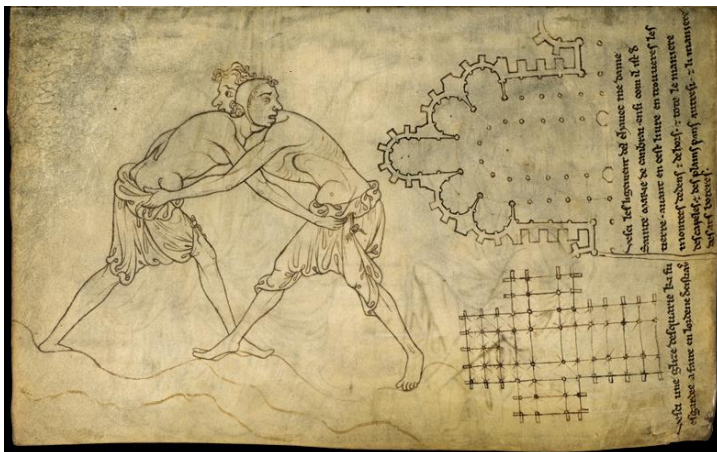 vesci lesligement del chavec me dame
Sainte marie de canbrai ensi com il ist
tierre. avant en cest livre en trouveres les
montees dedens. dehors. tote le maniere
des capeles. des plains pans autresi. li maniere
des ars boteres.
vesci une glize desquarie ki fu
esgardee a faire en lordene